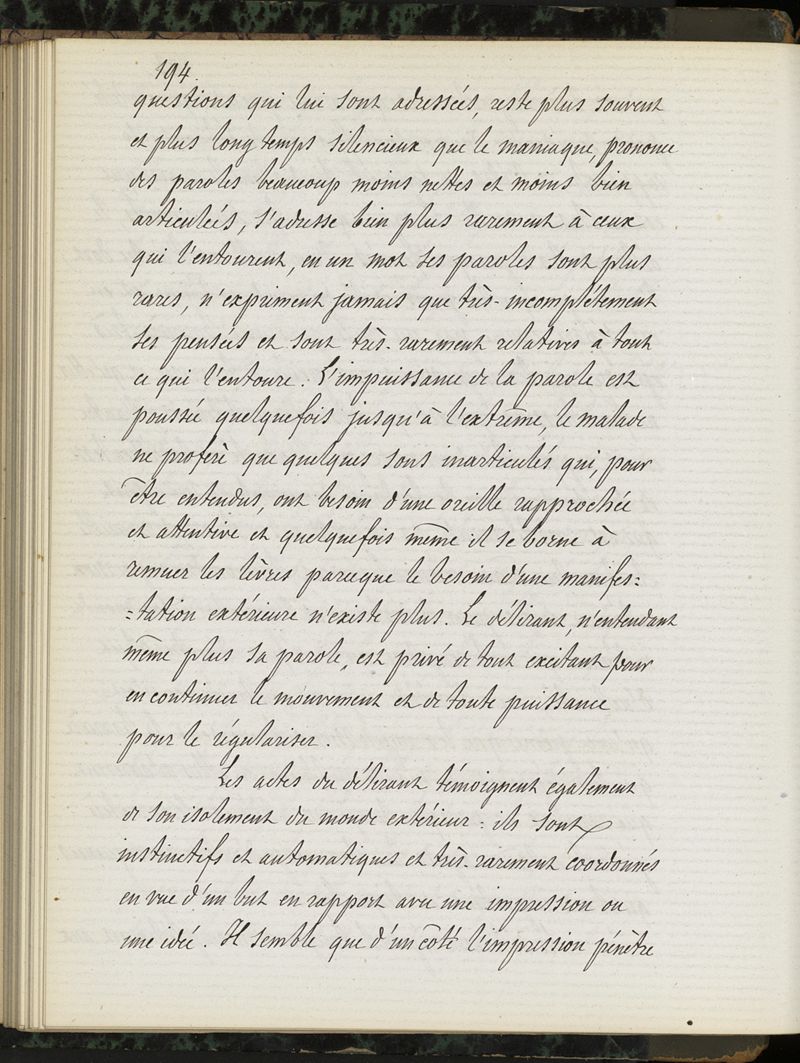 194.
questions qui lui sont adressées, reste plus souvent
et plus long temps silencieux que le maniaque, prononce
des paroles beaucoup moins nettes et moins bien
articulées, s'adresse bien plus rarement à ceux
qui l'entourent, en un mot ses paroles sont plus
rares, n'expriment jamais que très-incomplétement
ses pensées et sont très-rarement relatives à tout
ce qui l'entoure. L'impuissance de la parole est
poussée quelquefois jusqu'à l'extrême, le malade
ne profère que quelques sons inarticulés qui, pour
être entendus, ont besoin d'une oreille rapprochée
et attentive et quelquefois même il se borne à
remuer les lèvres parceque le besoin d'une manifes=
=tation extérieure n'existe plus. Le délirant, n'entendant
même plus sa parole, est privé de tout excitant pour
en continuer le mouvement et de toute puissance
pour le régulariser.
Les actes du délirant témoignent également
de son isolement du monde extérieur : ils sont
instinctifs et automatiques et très-rarement coordonnés
en vue d'un but en rapport avec une impression ou
une idée. Il semble que d'un côté l'impression pénètre